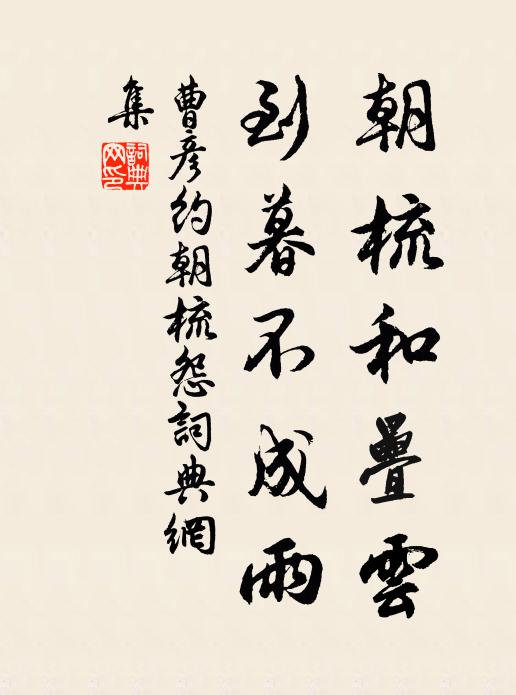 朝梳和疊雲
到暮不成雨
曹彦約朝梳怨詞典網
集
詞典
网印